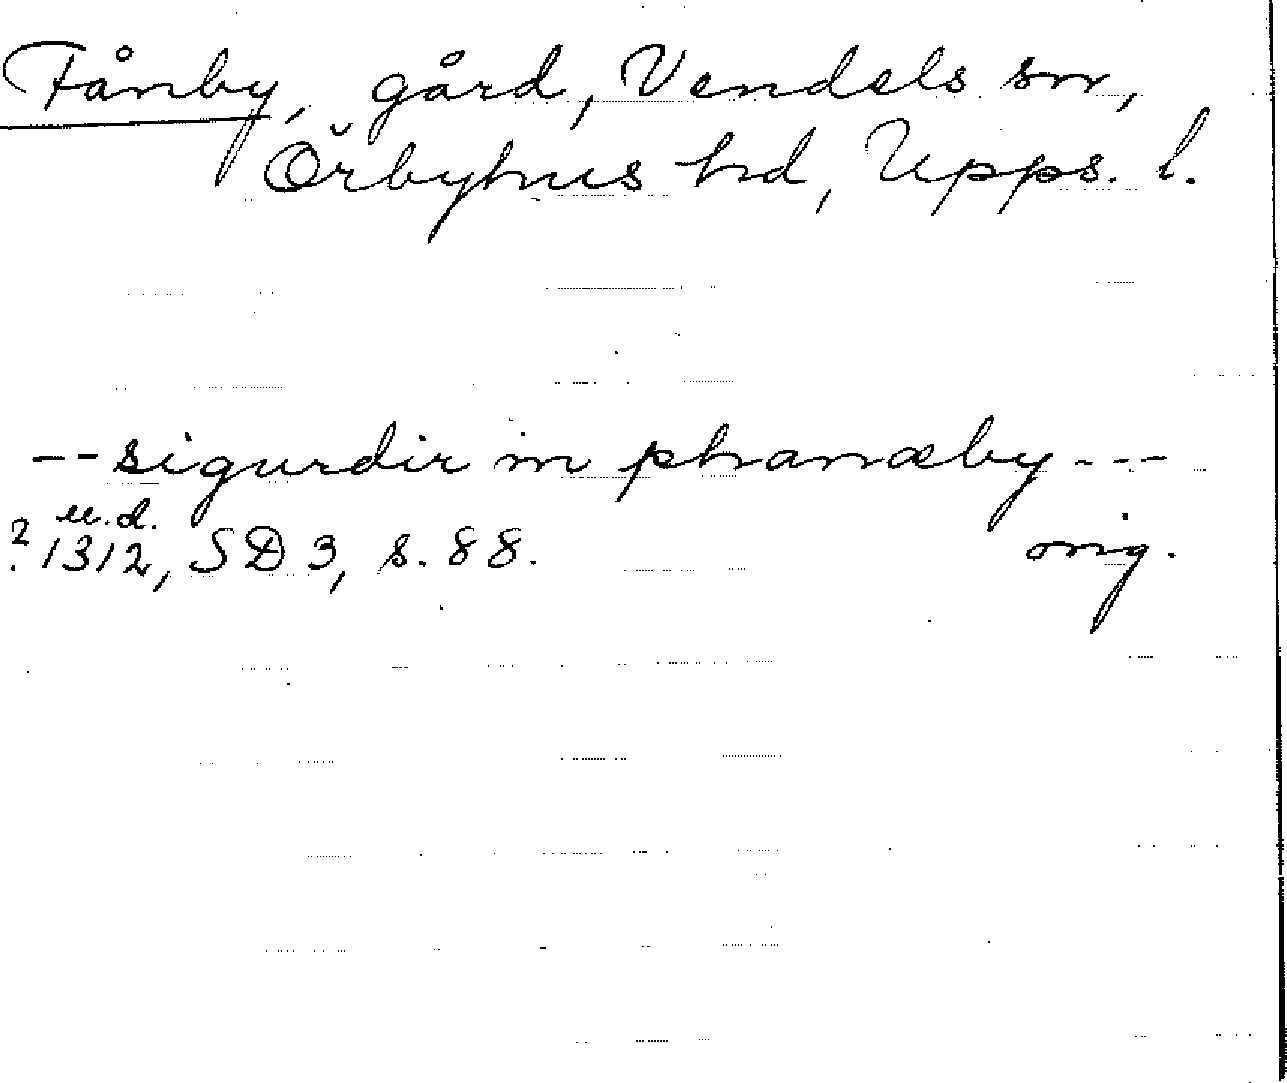 Fånby, gård, Vendels sn,
Örbyhus hd, Upps. l.
-- sigurdir in phanæby ---
u.d.
? 1312, SD 3, s. 88. orig.